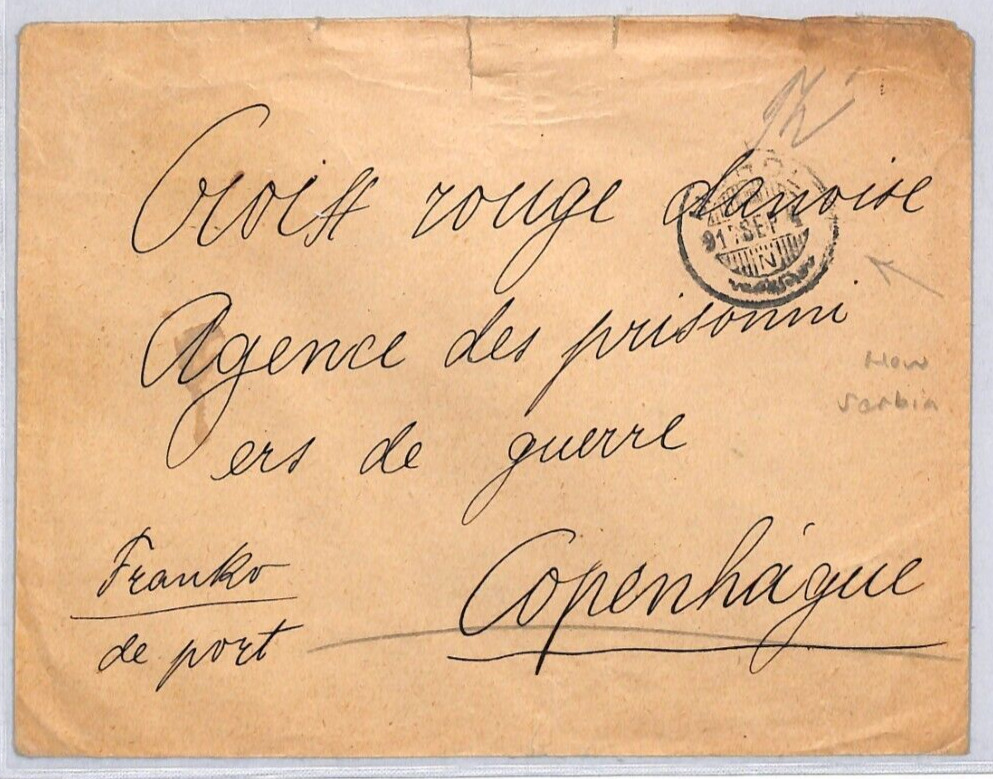 Croiss rouge danoise
91 SEP
Agence des prisonni
Now
Serbia
ers de guerre
Franko
de port
Copenhágue